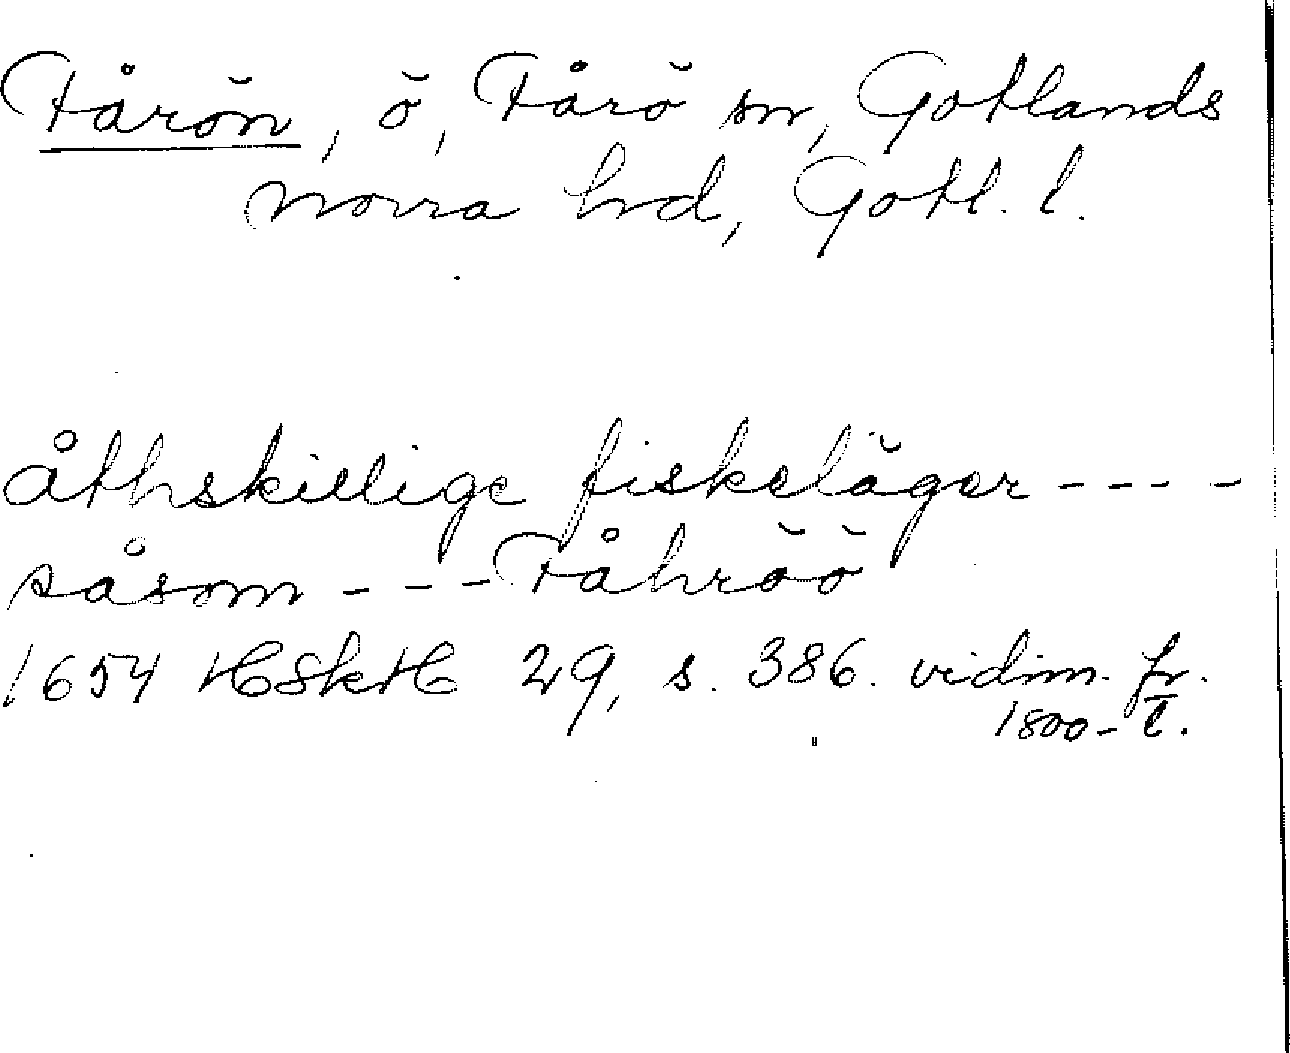 Fårön, ö, Fårö sn, Gotlands
norra hd, Gotl. l.
åthskillige fiskeläger ----
såsom --- Fåhröö
1654 HSkH 29, s. 386. vidim. fr.
1800-t.